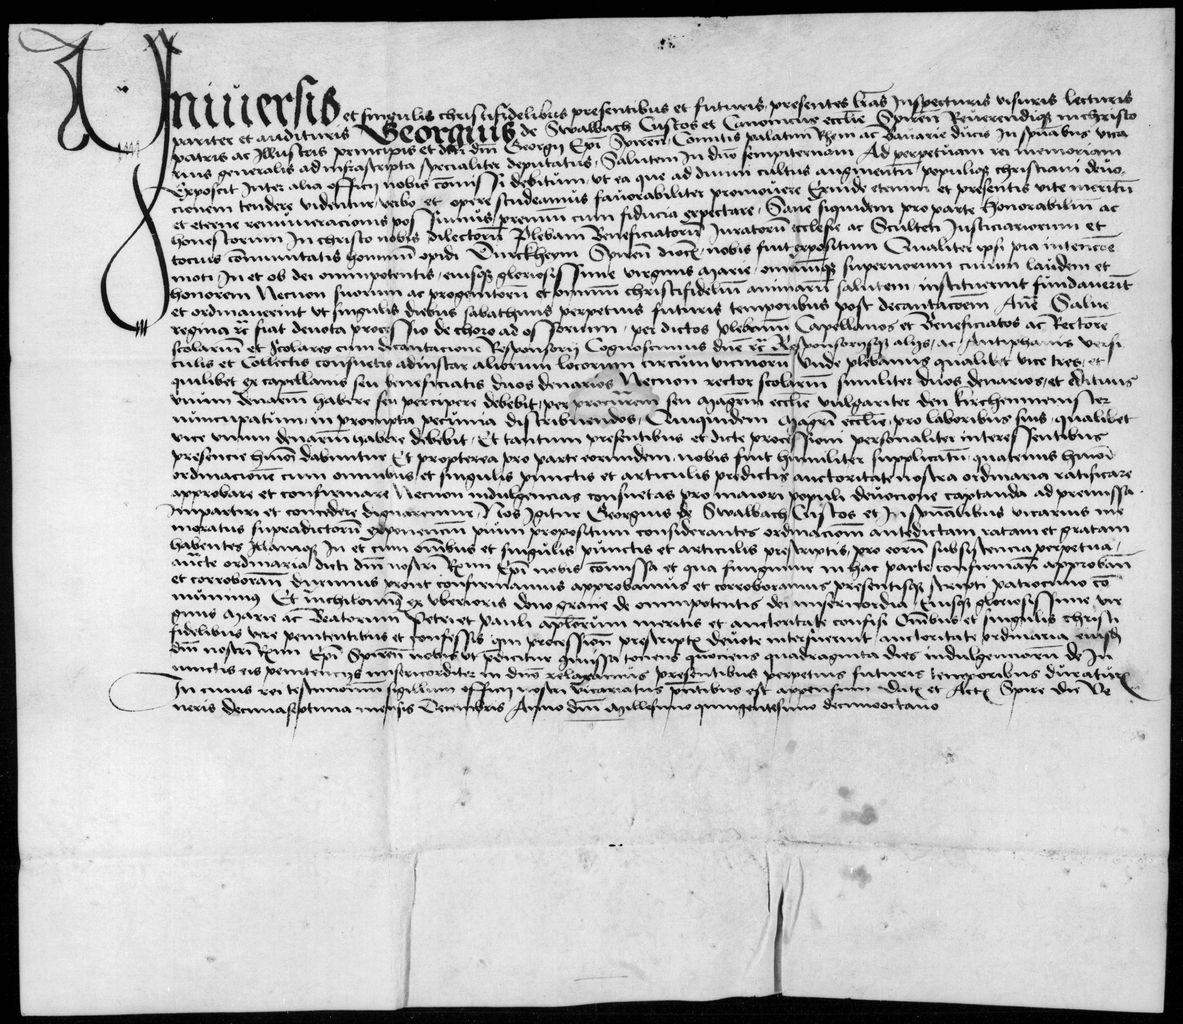 Universis et singulis christifidelibus presentibus et futuris, presentes lras Inspecturis visuris lecturis
pariter et audituris Georgius de Swalbach Custos et Canonicus ecclie Spiren Reverendiqz in christo
patris ac Illustris principis et dni dni Georgij Epi Spiren, Comitis palatini Rheni ac Bavarie ducis In spualibus vica
rius generalis ad infrascripta specialiter deputatus, Salutem In dno sempiternam Ad perpetuam rei memoriam
Exposcit Inter alia officij nobis comissi debitum, ut ea que ad divini cultus augmentu populiqz christiani devo
cionem tendere videntur, verbo et opere studeamus favorabiliter promovere Exinde eternum et presentis vite meritu
et eterne remuneracionis possimus premium cum fiducia expectare, Sane siquidem pro parte honorabilium ac
honestorum In christo nobis dilectoru Plebani Beneficiatoru Juratoru ecclesie ac Sculteti Justiciariorum et
tocius comunitatis hominum opidi Durckheym Spiren dioc, nobis fuit expositum Qualiter ipsi pia intencoe
moti In et ob dei omnipotentis, eiusqz gloriosissime virginis Marie, omniumqz supernorum civium laudem et
honorem Necnon suorum ac progenitoru et omnium christifidelium animaru salutem, instituerint fundaverint
et ordinaverint ut singulis diebus sabathinis perpetuis futuris temporibus post decantacoem Ante Salue
regina rc fiat devota processio de choro ad ossorium, per dictos plebanum Capellanos et Beneficiatos ac Rectore
scolarium et scolares cum decantacione Responsorij Cognoscimus dne rc Responsorijsqz alijs, ac Antiphanis versi
culis et Collectis consuetis ad instar aliorum locorum circumvicinoru Unde plebanus qualibet vice tres, et
quilibet ex capellanis seu beneficiatis duos denarios Necnon rector scolarum similiter duos denarios, et edituus
unum denarium habere seu percipere debebit, per procurem seu magrm ecclie vulgariter den kirchenmeinster
nuncupatum, in prompta pecunia distribuendos, Quiquidem magri ecclie, pro laboribus suis, qualibet
vice unum denariu habere debebit, Et tantum presentibus et dicte processioni personaliter interessentibus
presencie hmoi dabuntur Et propterea pro parte eorundem, nobis fuit humiliter supplicatu, quatenus hmoi
ordinacione cum omnibus et singulis punctis et articulis predictis auctoritate nostra ordinaria ratificare
approbare et confirmare Necnon indulgencias consuetas pro maiori populi devocione captanda ad premissa
Impartiri et concedere dignaremur Nos Igitur Georgius de Swalbach Custos et In spualibus vicarius me
moratus supradictoru exponencium pium propositum considerantes ordinaciom antedictam ratam et gratam
habentes Illamqz In et cum omibus et singulis punctis et articulis prescriptis, pro eoru subsistencia perpetua,
aucte ordinaria dicti dni nostri Rmi Epi nobis comissa et qua fungimur in hac parte confirmanu approbanu
et corroboranu duximus prout confirmamus approbamus et corroboramus presentisqz scripti patrocinio co
munimus Et Inchilominus ex uberioris dono gracie de omnipotentis dei misericordia Eiusqz gloriosissime vir
ginis Marie ac Beatorum Petri et Pauli aplorum meritis et auctoritate confisi Omibus et singulis christi
fidelibus vere penitentibus et confessis, qui processioni prescripte devote interfuerint, auctoritate ordinaria eiusde
dni nostri Rmi Epi Spiren nobis ut predicitur comissa tociens quociens quadraginta dies indulgenciaru de In
iunctis eis penitencijs misericorditer in dno relaxamus presentibus perpetuis futuris temporibus duraturis
In cuius rei testimonium sigillum officij nostri vicariatus pntibus est appensum Dat et Act Spire die Ve
neris decimaseptima mensis Decembris Anno dni Millesimo quingentesimo decimooctavo